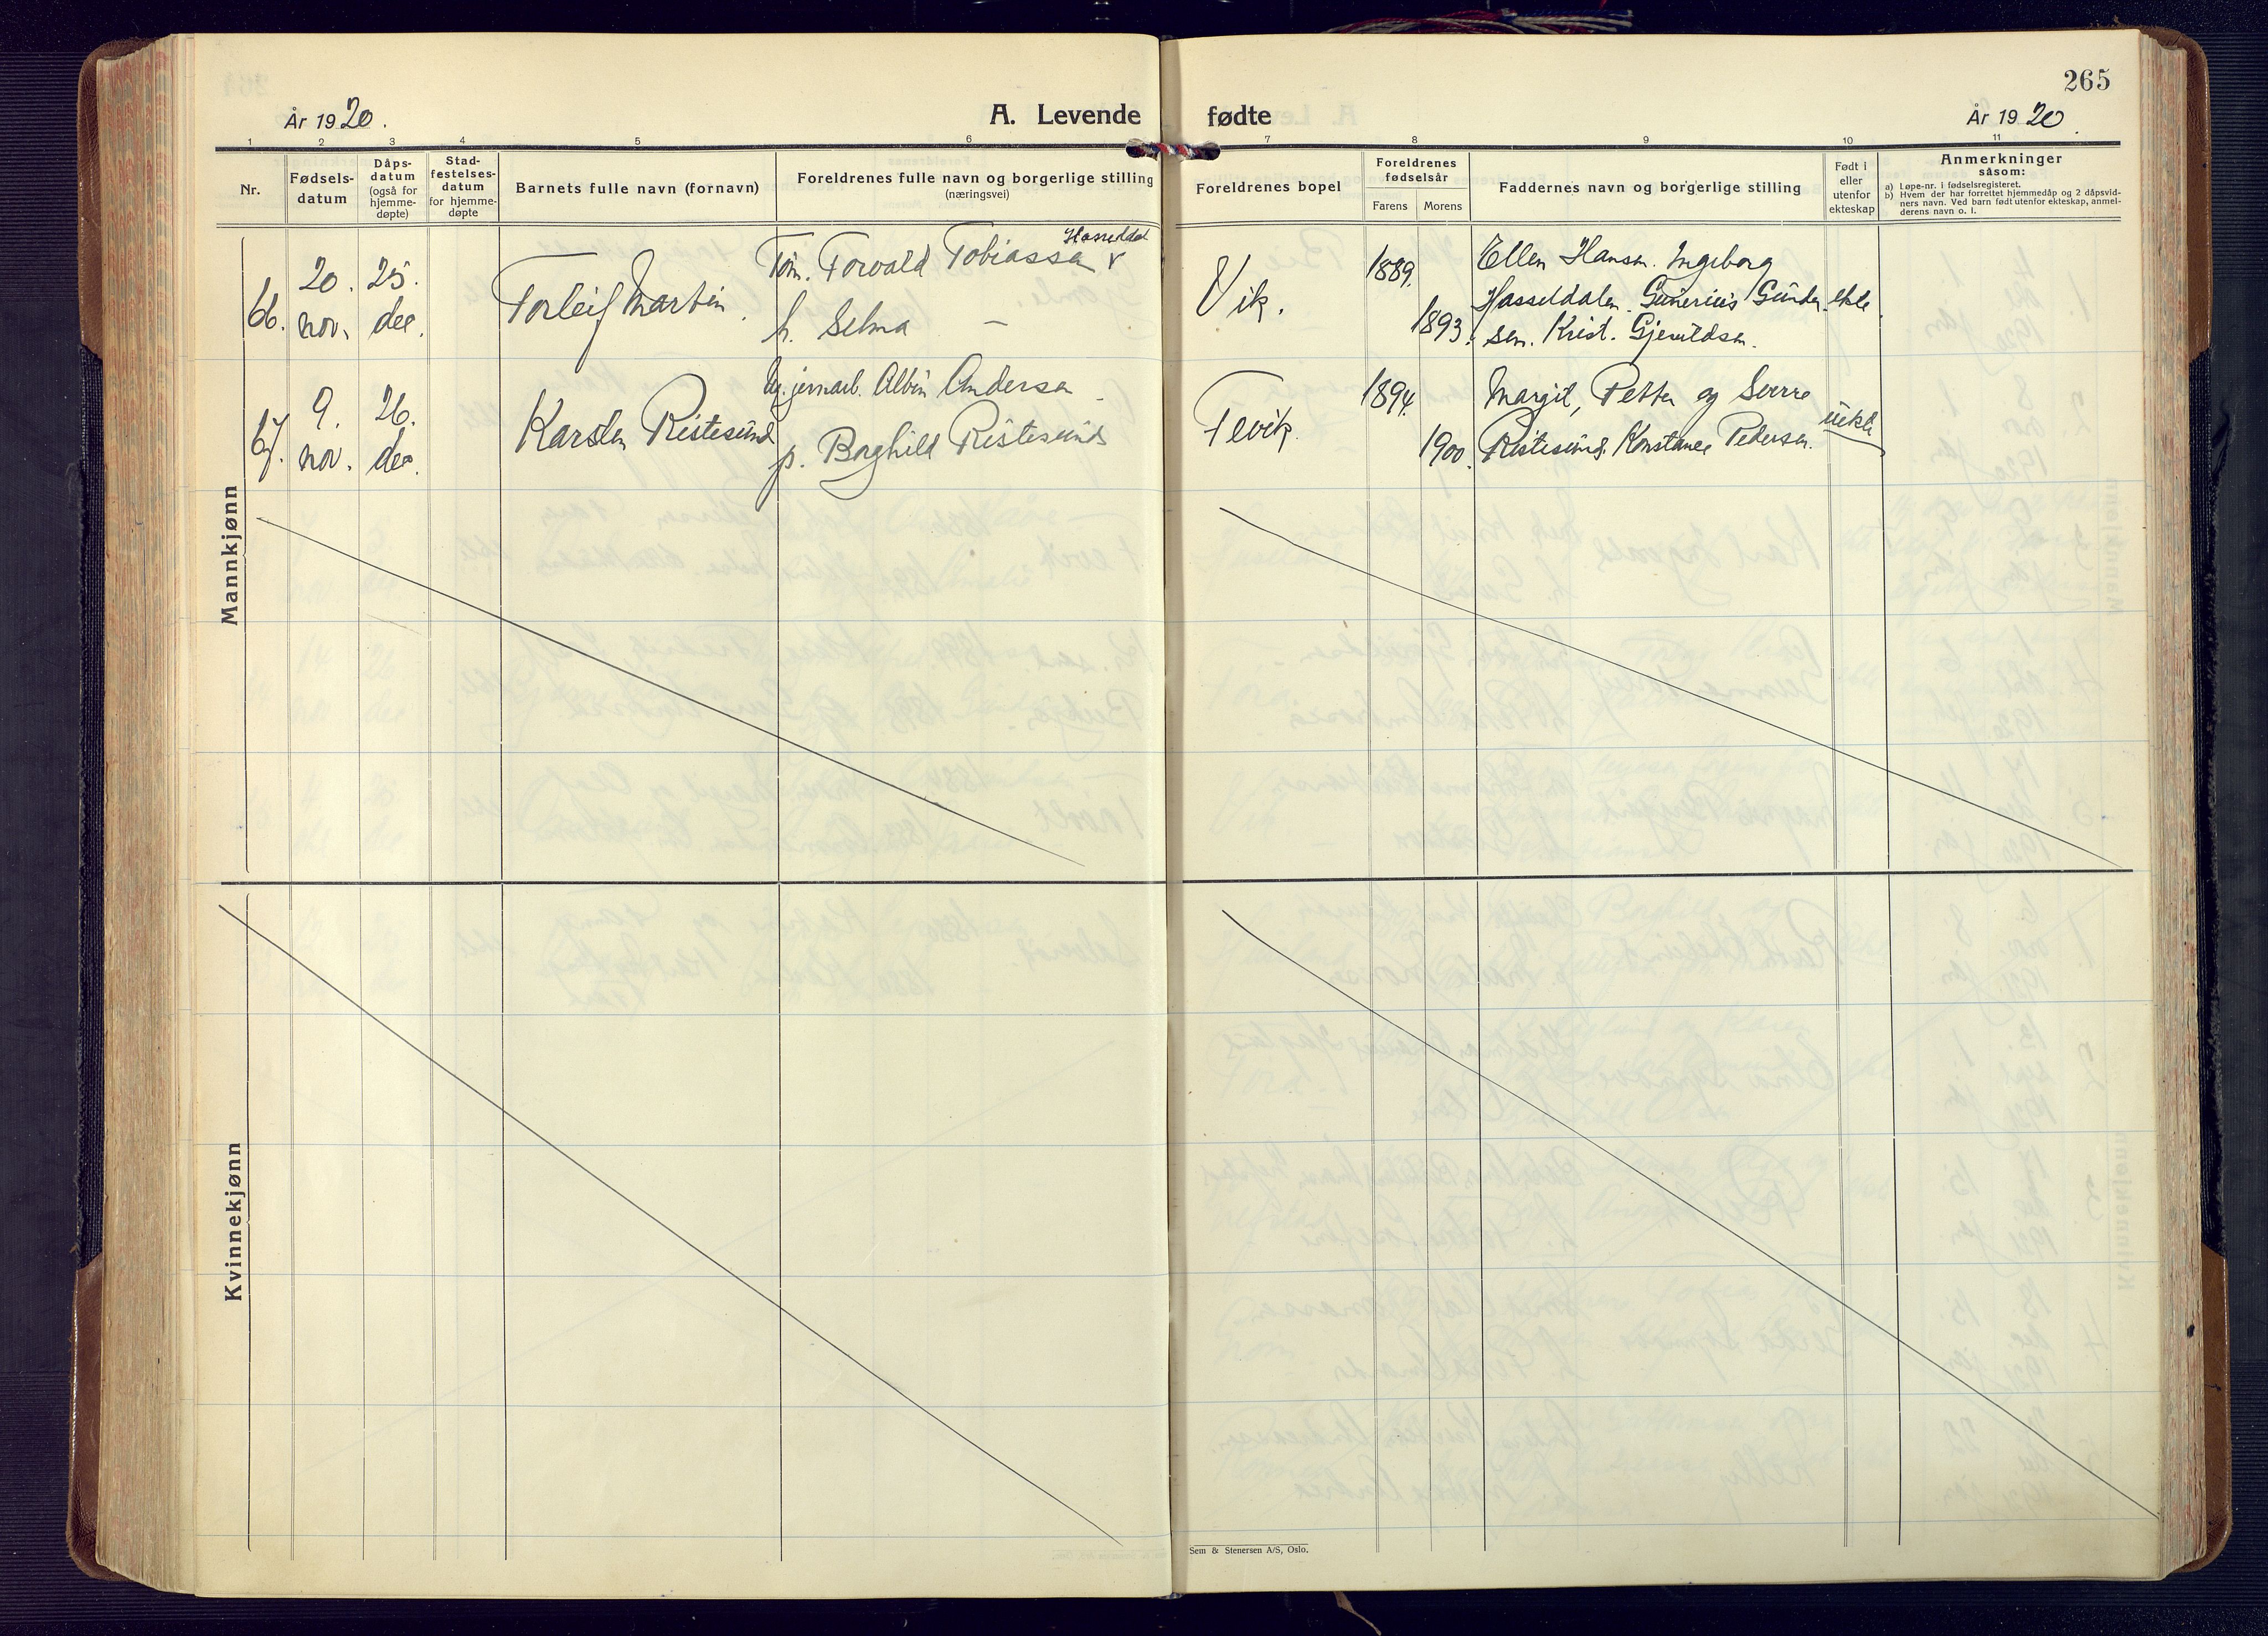 265
År 1920.
A. Levende fødte
År 1920.
1 2 3 4 5 6 7 8 9 10 11
Nr.
Fødsels-
datum
Dåps-
datum
(også for
hjemme-
døpte)
Stad-
festelses-
datum
for hjemme-
døpte
Barnets fulle navn (fornavn)
Foreldrenes fulle navn og borgerlige stilling
(næringsvei)
Foreldrenes bopel
Foreldrenes
fødselsår
Farens
Morens
Faddernes navn og borgerlige stilling
Født i
eller
utenfor
ekteskap
Anmerkninger
såsom:
a) Løpe-nr. i fødselsregisteret.
b) Hvem der har forrettet hjemmedåp og 2 dåpsvid-
ners navn. Ved barn født utenfor ekteskap, anmel-
derens navn o. l.
Mannkjønn
66.
20.
nov.
25.
des.
Torleif Martin.
Tøm. Torvald Tobiassen
h. Selma —
Vik.
1889.
1893.
Ellen Hansen. Ingeborg
Hasseldalen. Gunerius Gunder-
sen. Krist. Gjervildsen.
ekte.
67.
9.
nov.
26.
des.
Karsten Ristesund
Ug. jernarb. Albin Andersen
p. Borghild Ristesund
Fevik.
1894.
1900.
Margit, Petter og Sverre
Ristesund. Konstanse Pedersen.
uekte
Kvinnekjønn
Sem & Stenersen A/S, Oslo.